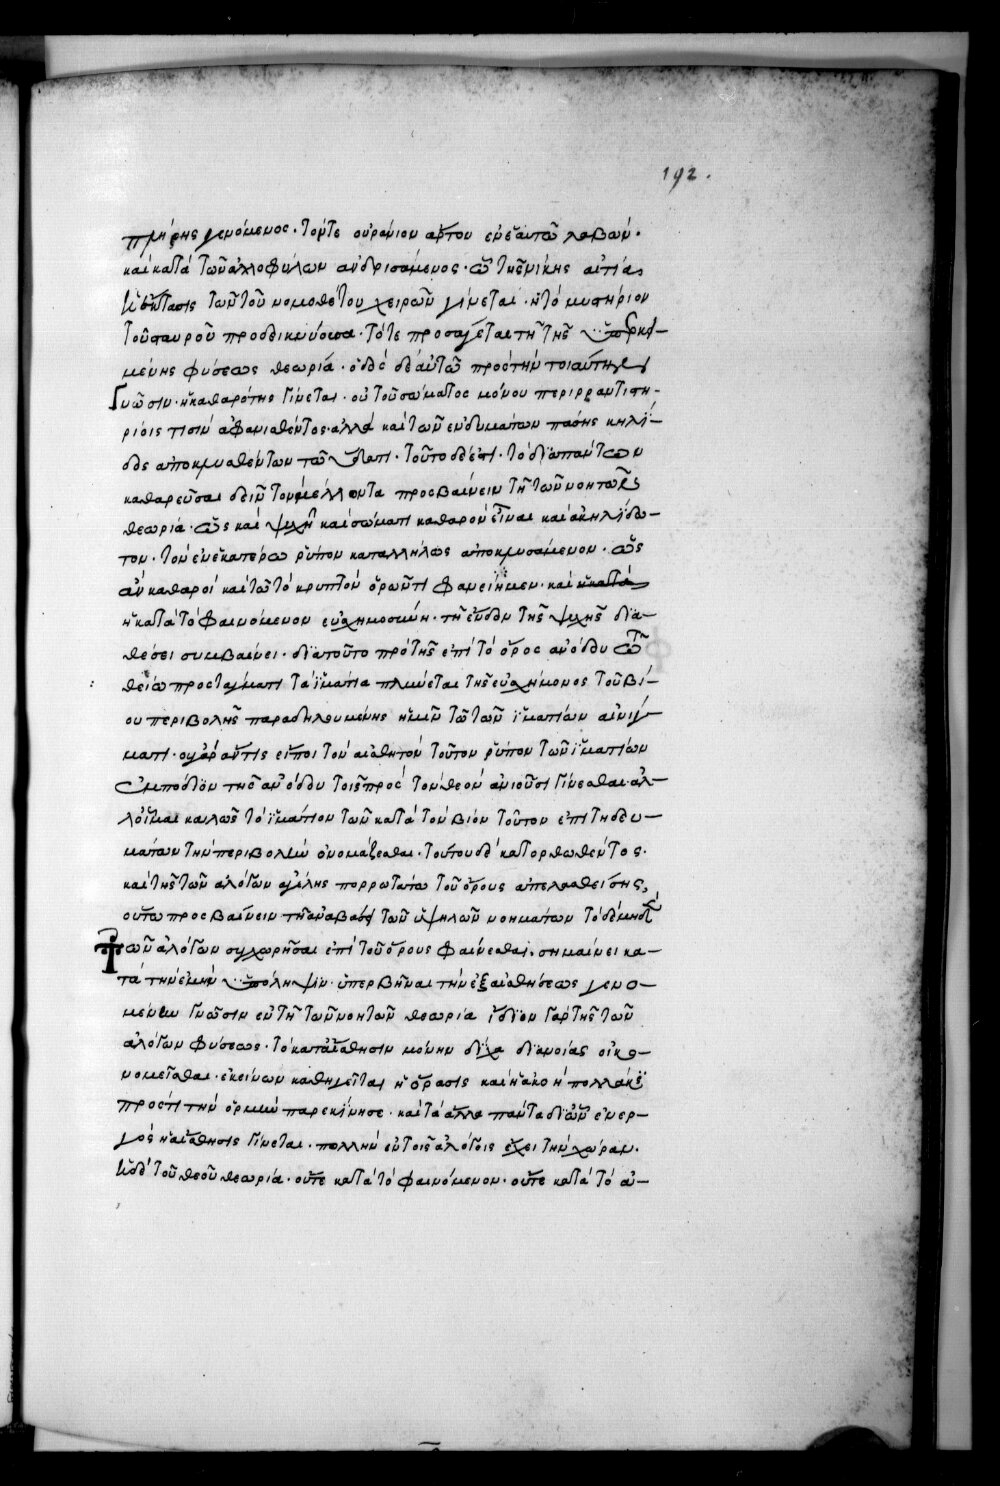 192.
πλήρης γενόμενος. τόν τε οὐράνιον ἄρτον ἐν ἑαυτῶ λαβών.
καὶ κατὰ τῶν ἀλλοφύλων ἀνδρισάμενος. ὧ τῆς νίκης αἰτία
ἡ ἔκτασις τῶν τοῦ νομοθέτου χειρῶν γίνεται. ἡ τὸ μυστήριον
τοῦ σταυροῦ προδεικνύουσα. τότε προσάγεται τῆ τῆς ὑπερκει-
μένης φύσεως θεωρία. ὁδὸς δὲ αὐτῶ πρὸς τὴν τοιαύτην
γνῶσιν. ἡ καθαρότης γίνεται. οὐ τοῦ σώματος μόνου περιρραντιστη-
ρίοις τισὶν ἀφαγνισθέντος. ἀλλὰ καὶ τῶν ἐνδυμάτων πάσης κηλί-
δος ἀποκλυσθέντων τῶ ὕδατι. τοῦτο δέ ἐστι. τὸ διαπάντων
καθαρεῦσαι δεῖν τὸν μέλλοντα προσβαίνειν τῆ τῶν νοητῶν
θεωρία. ὡς καὶ ψυχῆ καὶ σώματι καθαρὸν εἶναι καὶ ἀκηλίδω-
τον. τὸν ἐν ἑκατέρω ῥύπον καταλλήλως ἀποκλυσάμενον. ὡς
ἂν καθαροὶ καὶ τῶ τὸ κρυπτὸν ὁρῶντι φανείημεν. καὶ ἡ κατὰ
ἡ κατὰ τὸ φαινόμενον εὐσχημοσύνη. τῆ ἔνδον τῆς ψυχῆς δια-
θέσει συμβαίνει. διατοῦτο πρὸ τῆς ἐπὶ τὸ ὄρος ἀνόδου τῶ
θείω προστάγματι τὰ ἱμάτια πλύνεται τῆς εὐσχήμονος τοῦ βί-
ου περιβολῆς παραδηλουμένης ἡμῖν τῶ τῶν ἱματίων αἰνίγ-
ματι. οὐ γὰρ ἄν τις εἴποι τὸν αἰσθητὸν τοῦτον ῥύπον τῶν ἱματίων
ἐμπόδιον τῆς ἀνόδου τοῖς πρὸς τὸν θεὸν ἀνιοῦσι γίνεσθαι ἀλ-
λ' οἶμαι καλῶς τὸ ἱμάτιον τῶν κατὰ τὸν βίον τοῦτον ἐπιτηδευ-
μάτων τὴν περιβολὴν ὀνομάζεσθαι. τούτου δὲ κατορθωθέντος.
καὶ τῆς τῶν ἀλόγων ἀγέλης πορρωτάτω τοῦ ὄρους ἀπελασθείσης,
οὕτω προσβαίνειν τῆ ἀναβάσει τῶν ὑψηλῶν νοημάτων τὸ δὲ μηδὲν
τῶν ἀλόγων συγχωρῆσαι ἐπὶ τοῦ ὄρους φαίνεσθαι. σημαίνει κα-
τὰ τὴν ἐμὴν ὑπόληψιν. ὑπερβῆναι τὴν ἐξ αἰσθήσεως γενο-
μένην γνῶσιν ἐν τῆ τῶν νοητῶν θεωρία ἴδιον γὰρ τῆς τῶν
ἀλόγων φύσεως. τὸ κατ' αἴσθησιν μόνην δίχα διανοίας οἰκο-
νομεῖσθαι. ἐκείνων καθηγεῖται ἡ ὅρασις καὶ ἡ ἀκοὴ πολλάκις
πρὸς τι τὴν ὁρμὴν παρεκίνησε. καὶ τὰ ἄλλα πάντα δι' ὧν ἐνερ-
γὸς ἡ αἴσθησις γίνεται. πολλὴν ἐν τοῖς ἀλόγοις ἔχει τὴν χώραν.
ἡ δὲ τοῦ θεοῦ θεωρία. οὔτε κατὰ τὸ φαινόμενον. οὔτε κατὰ τὸ ἀ-